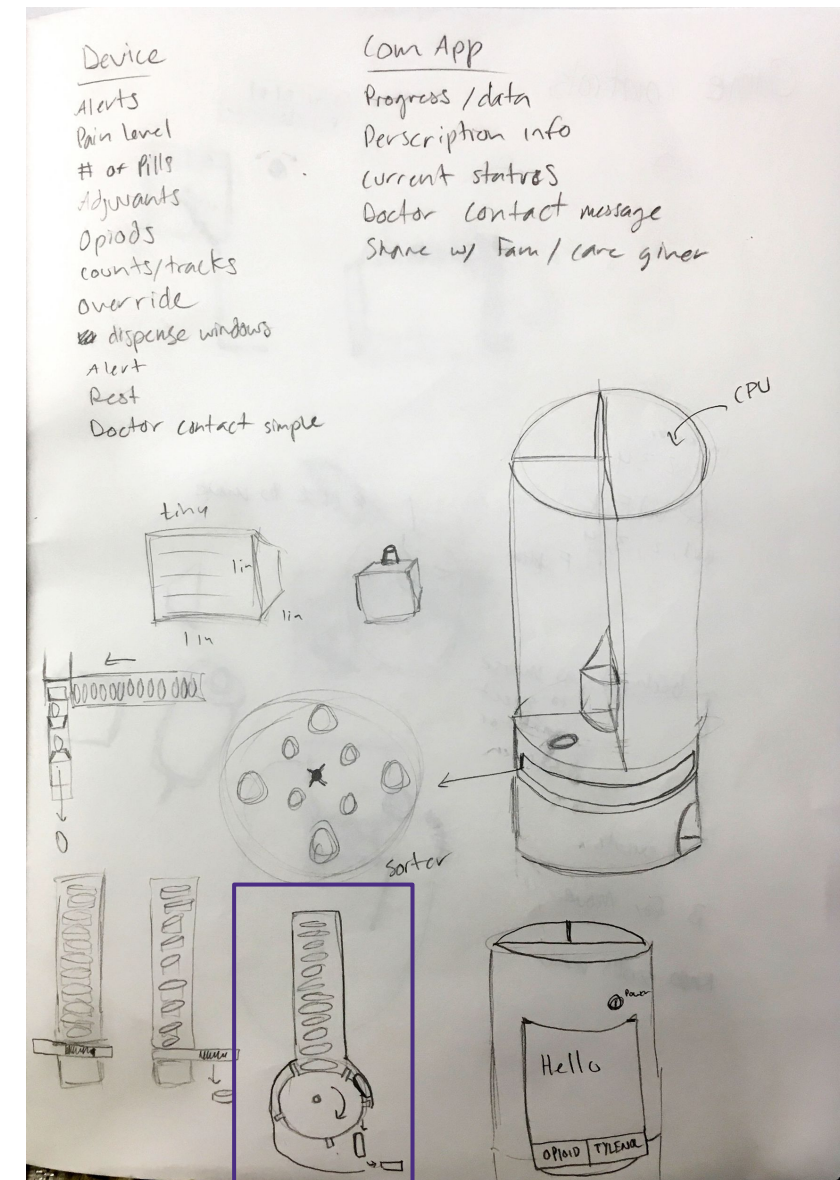 Device
Alerts
Pain Level
# of Pills
Adjuvants
Opiods
counts/tracks
override
dispense windows
Alert
Rest
Doctor contact simple
Com App
Progress / data
Perscription info
current status
Doctor contact message
Share w/ Fam / care giver
CPU
tiny
1in
1in
1in
sorter
Power
Hello
OPIOID
TYLENOL